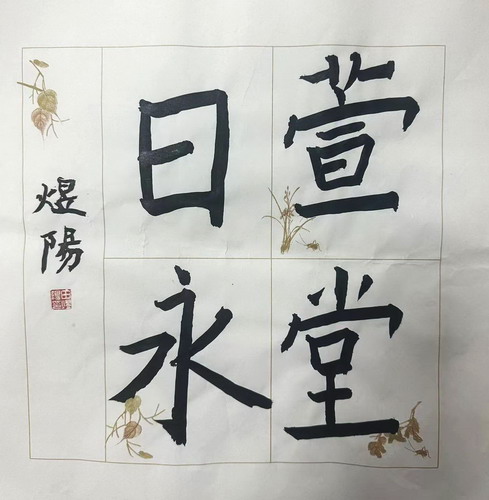 萱堂
日永
煜陽